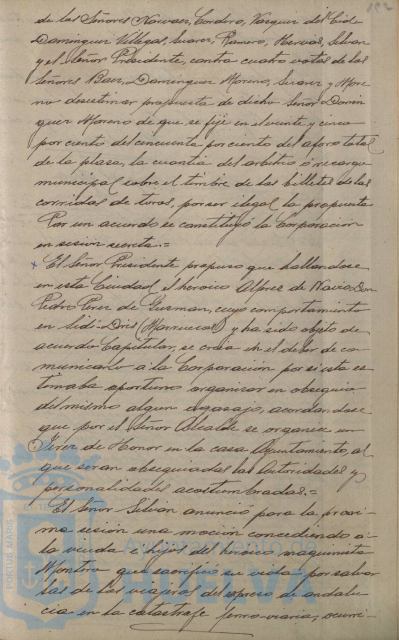 182
de los Señores Narvaez, Cordero, Vazquez del Cid
Dominguez Villegas, Suarez, Romero, Hervias, Silvan
y el Señor Presidente, contra cuatro votos de los
Señores Baez, Dominguez Moreno, Suarez y More
no desestimar propuesta de dicho Señor Domin
guez Moreno de que se fije en el veinte y cinco
por ciento del cincuenta por ciento del aforo total
de la plaza, la cuantia del arbitrio ó recargo
municipal sobre el timbre de los billetes de las
corridas de toros, por ser ilegal la propuesta
Por un acuerdo se constituyó la Corporación
en sesión secreta.=
x El Señor Presidente propuso que hallandose
en esta Ciudad el heroico Alferez de Navio Don
Pedro Perez de Guzman, cuyo comportamiento
en Sidi-Dris (Marruecos) y ha sido objeto de
acuerdo Capitular, se creia en el deber de co-
municarlo á la Corporación por si esta es
timaba oportuno organizar en obsequio
del mismo algun agasajo, acordandose
que por el Señor Alcalde se organice un
Jerez de Honor en la casa Ayuntamiento, al
que seran obsequiadas las Autoridades y
personalidades acostumbradas.=
El Señor Silvan anunció para la proxi
ma sesión una moción concediendo á
la viuda é hijos del heroico maquinista
Montero que sacrificó su vida por salvar
las de los viajeros del expreso de andalu
cia en la catastrofe ferro-viaria, ocurri-
PORTUS MARIS
HUELVA